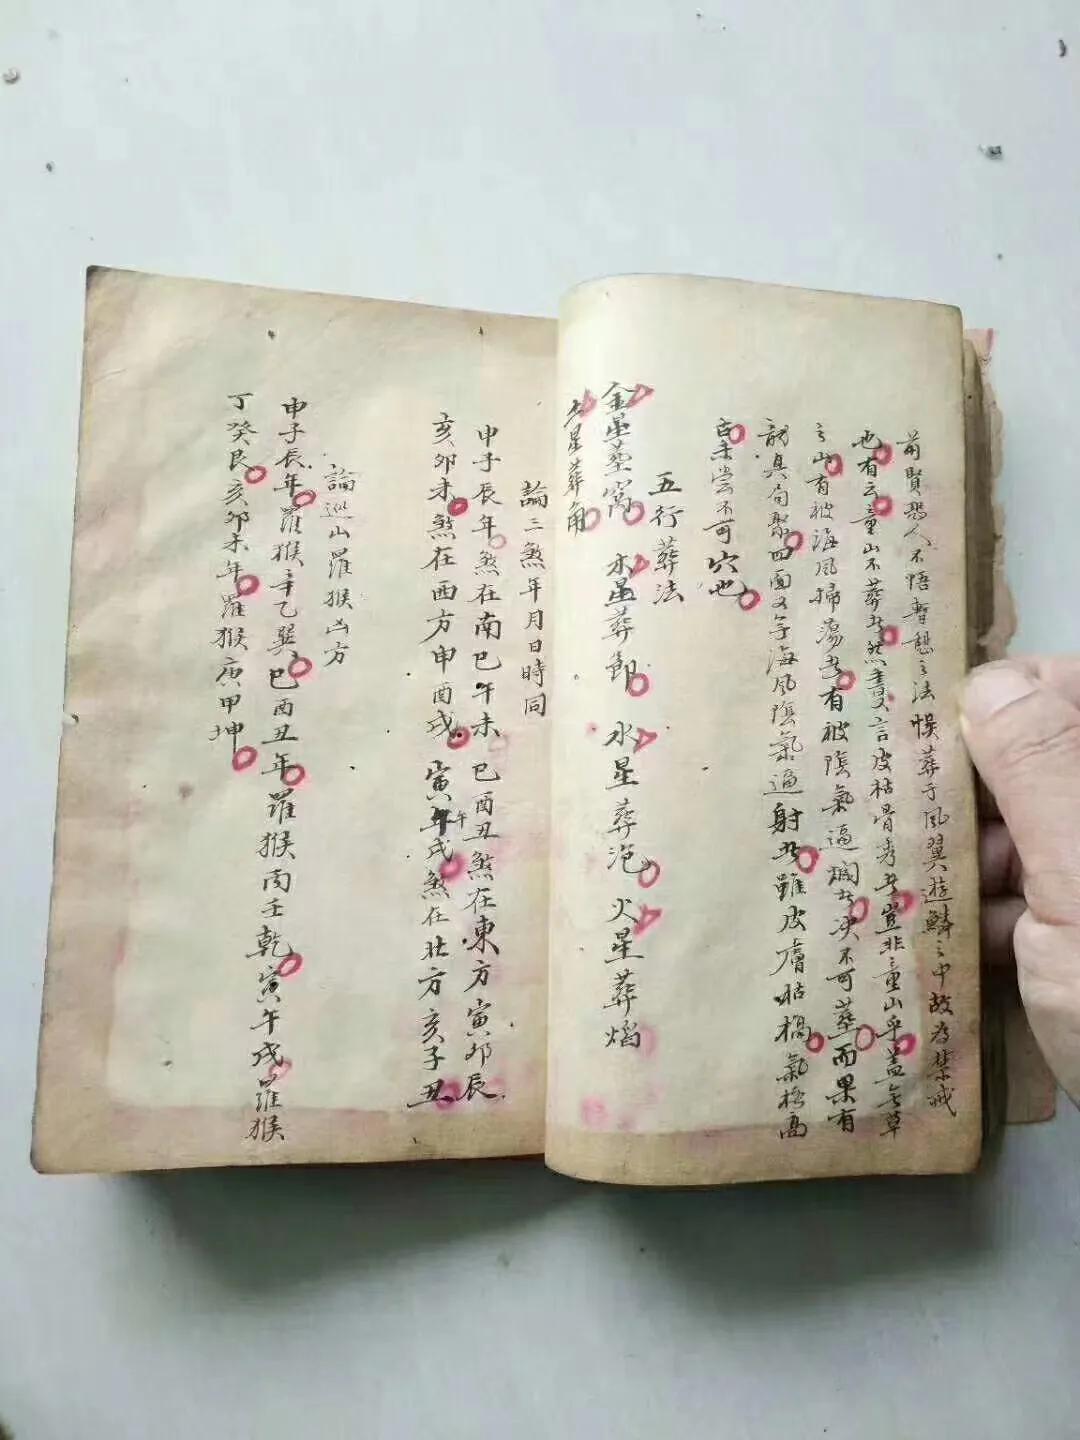 前賢恐人不悟暫想之法悞葬于風翼遊鱗之中故為禁戒
也有云童山不葬者然書又言皮枯骨秀者豈非童山乎蓋無草
之山有被海風掃蕩者有被陰氣逼爛者决不可葬而果有
龍真局聚四面又無海風陰氣逼射者雖皮膚枯槁氣極高
古未嘗不可穴也
五行葬法
金星葬窩 木星葬節 水星葬泡 火星葬熖
土星葬角
論三煞年月日時同
申子辰年煞在南巳午未巳酉丑煞在東方寅卯辰
亥卯未煞在西方申酉戌寅午年戌煞在北方亥子丑
論巡山羅猴凶方
申子辰年羅猴辛乙巽巳酉丑年羅猴丙壬乾寅午戌羅猴
丁癸艮亥卯未年羅猴庚甲坤